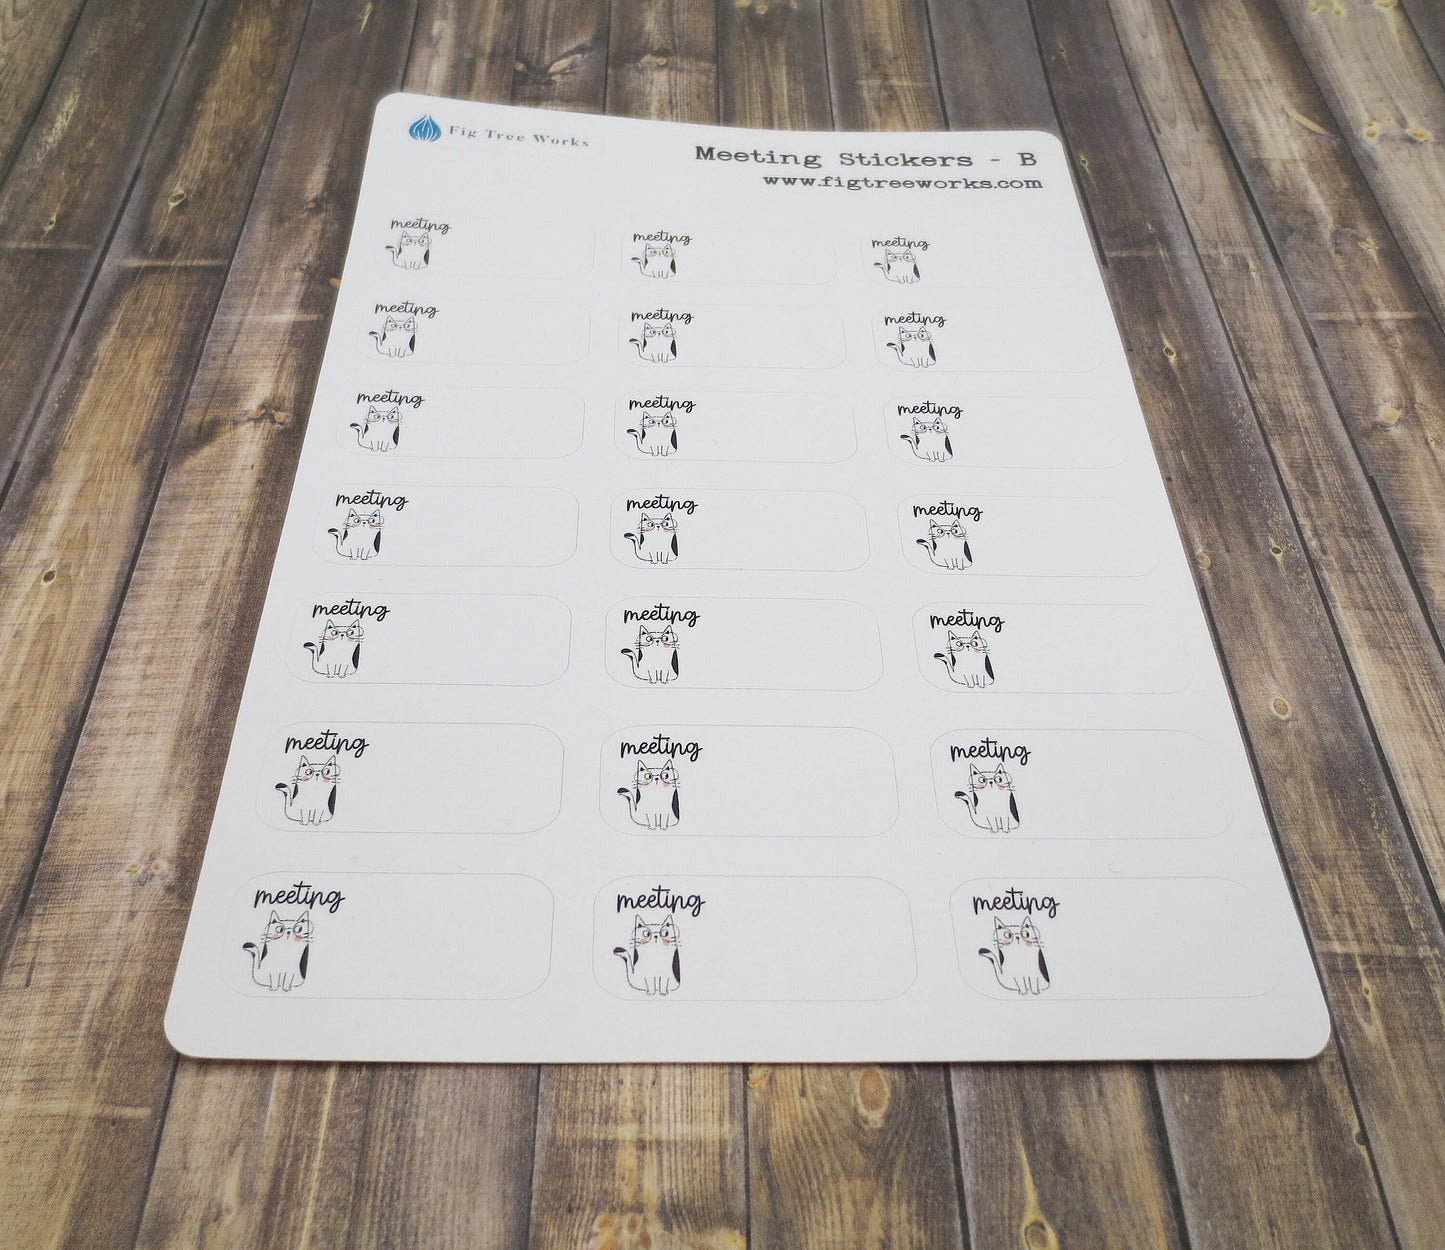 Fig Tree Works
Meeting Stickers - B
www.figtreeworks.com
meeting meeting meeting
meeting meeting meeting
meeting meeting meeting
meeting meeting meeting
meeting meeting meeting
meeting meeting meeting
meeting meeting meeting